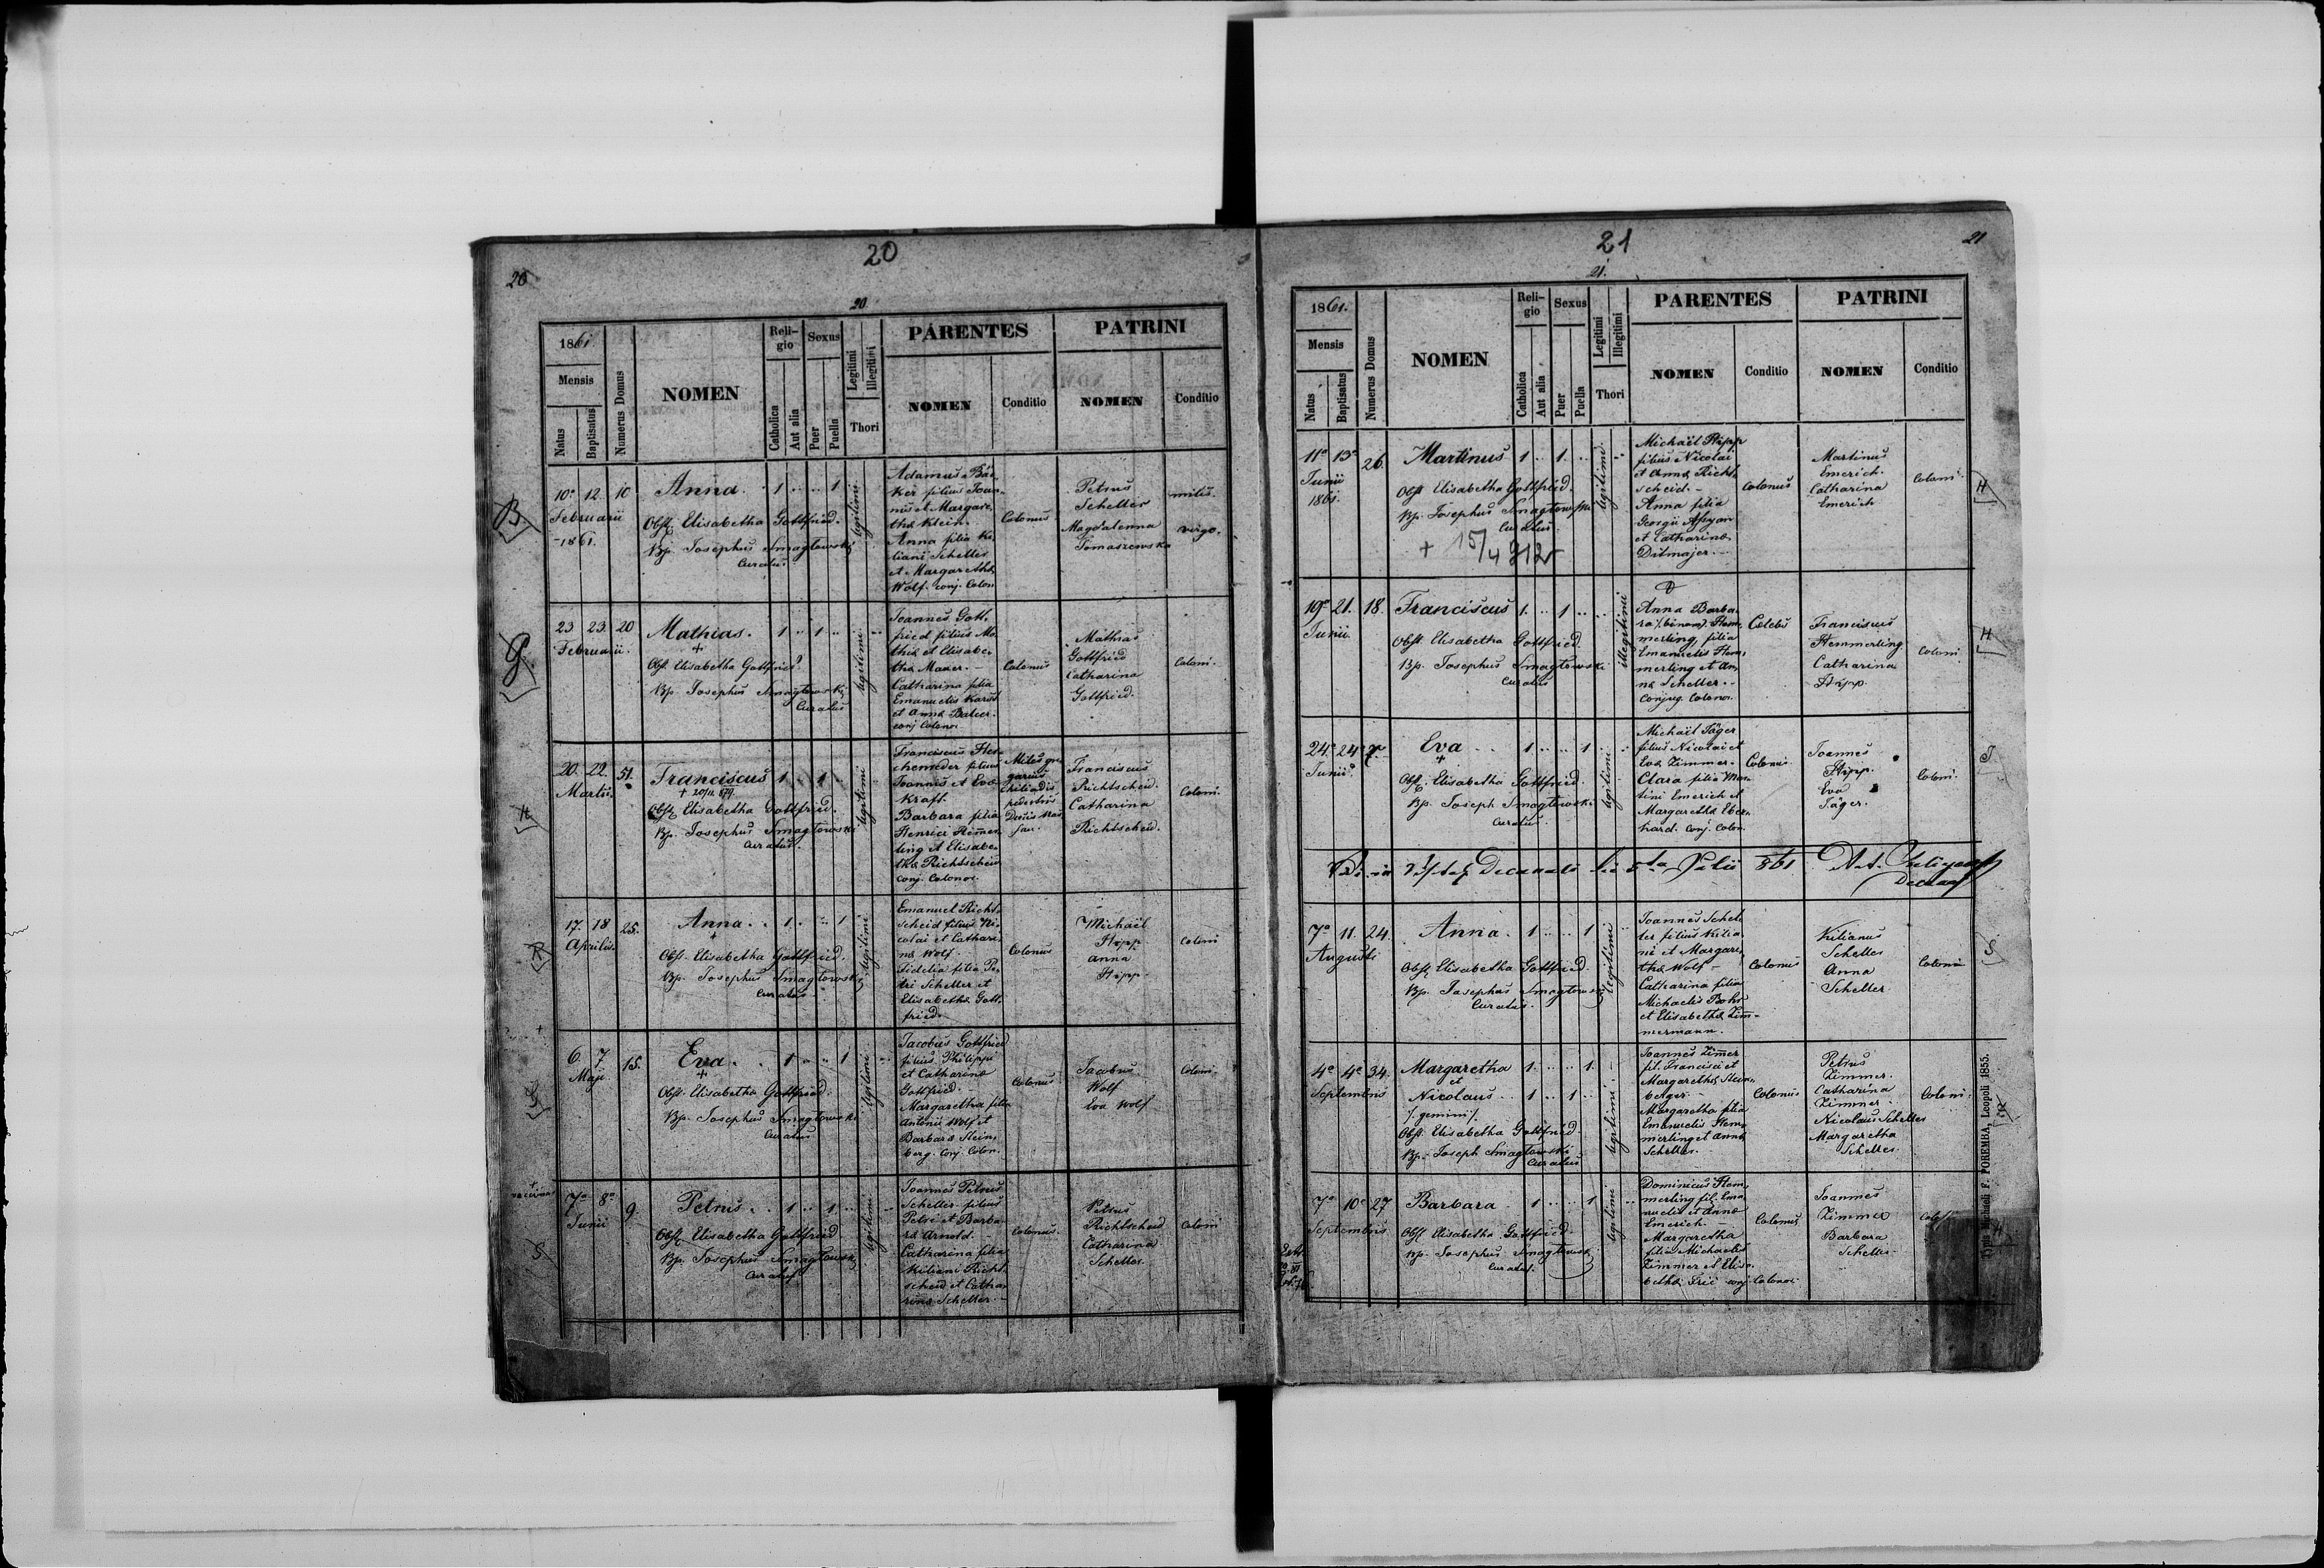 20
20
20
1861
Mensis
Natus
Baptisatus
Numerus Domus
NOMEN
Reli-
gio
Catholica
Aut alia
Sexus
Puer
Puella
Legitimi
Illegitimi
Thori
PARENTES
NOMEN
Conditio
PATRINI
NOMEN
Conditio
B.
10a 12. 10
Februarii
1861.
Anna. 1 1
Obst. Elisabetha Gottfried.
Bp. Josephus Smagłowski
Curatus
legitimi
Adamus Bä-
ker filius Joan-
nis et Margare-
tha Klein.
Anna filia Ki-
liani Scheller
et Margaretha
Wolf. conj. Colon.
Colonus
Petrus
Scheller
Magdalenna
Tomaszewska
virgo.
G.
23 23. 20
Februarii.
Mathias. 1 1
+
Obst. Elisabetha Gottfried.
Bp. Josephus Smagłowski
Curatus
legitimi
Joannes Gott-
fried filius Ma-
thia et Elisabe-
tha Maxer.
Catharina filia
Emanuelis
et Anna
conj. Colonor.
Colonus
Mathias
Gottfried
Catharina
Gottfried.
Coloni.
H
20. 22. 51.
Martii.
Franciscus 1 1
Obst. Elisabetha Gottfried.
Bp. Josephus Smagłowski
Curatus.
legitimi
Franciscus Her-
filius
Joannis et Eva
Kraft.
Barbara filia
Henrici Hemer-
ling et Elisabe-
tha Richtscheid
conj. Colonor.
Miles gre-
garius
Franciscus
Richtscheid.
Catharina
Richtscheid.
Coloni.
R
17. 18 25.
Aprilis.
Anna. 1 1
+
Obst. Elisabetha Gottfried.
Bp. Josephus Smagłowski
Curatus
legitimi
Emanuel Richt-
scheid filius Ni-
colai et Cathari-
na Wolf.
Fidelia filia Pe-
tri Scheller et
Elisabetha Gott-
fried.
Colonus
Michael
Hipp
Anna
Hipp.
Coloni
G
6. 7 15.
Maji
Eva. 1 1
+
Obst. Elisabetha Gottfried.
Bp. Josephus Smagłowski
Curatus
legitimi
Jacobus Gottfried
filius Philippi
et Catharina
Gottfried.
Margaretha filia
Antonii Wolf et
Barbara Stein-
berg. conj. Colon.
Colonus
Jacobus
Wolf
Eva Wolf
Coloni.
S.
7a 8a 9.
Junii
Petrus. 1 1
Obst. Elisabetha Gottfried
Bp. Josephus Smagłowski
Curatus
legitimi
Joannes Petrus
Scheller filius
Petri et Barba-
ra Arnold.
Catharina filia
Kiliani Richt-
scheid et Catha-
rina Scheller.
Colonus.
Petrus
Richtscheid
Catharina
Scheller.
Coloni
21
21
21.
1861.
Mensis
Natus
Baptisatus
Numerus Domus
NOMEN
Reli-
gio
Catholica
Aut alia
Sexus
Puer
Puella
Legitimi
Illegitimi
Thori
PARENTES
NOMEN
Conditio
PATRINI
NOMEN
Conditio
11a 13a 26.
Junii
1861.
Martinus 1 1.
Obst Elisabetha Gottfried.
Bp. Josephus Smagłowski
Curatus
+ 15/4 912
legitimi.
Michaël Hipp
filius Nicolai
et Anna Richt-
scheid.
Anna filia
Georgii
et Catharina
Ditmajer.
Colonus
Martinus
Emerich.
Catharina
Emerich
Coloni.
H
19a 21. 18.
Junii.
Franciscus 1. 1
Obst Elisabetha Gottfried.
Bp. Josephus Smagłowski
Curatus
illegitimi
Anna Barba-
ra /:binom:/ Hem-
merling, filia
Emanuelis Hem-
merling et An-
na Scheller.
Conjug. Colonor.
Celebs
Franciscus
Hemmerling
Catharina
Hipp.
Coloni
H
24a 24a 7.
Junii
Eva 1 1
+
Obst. Elisabetha Gottfried
Bp. Joseph Smagłowski
Curatus
legitimi
Michaël Jäger
filius Nicolai et
Eva Zimmer.
Clara filia Mar-
tini Emerich et
Margaretha Eber-
hard. conj. Colon.
Colonus
Joannes
Hipp.
Eva
Jäger.
Coloni.
J
861
7a 11. 24.
Augusti
Anna. 1 1
Obst Elisabetha Gottfried.
Bp. Josephus Smagłowski
Curatus.
legitimi
Joannes Schel-
ler filius Kilia-
ni et Margare-
tha Wolf
Catharina filia
Michaelis
et Elisabetha Zim-
mermann.
Colonus
Kilianus
Scheller
Anna
Scheller
Coloni
S
4a 4a 34.
Septembris
Margaretha 1. 1.
et
Nicolaus 1 1
/:gemini:/
Obst. Elisabetha Gottfried
Bp. Joseph Smagłowski
Curatus
legitimi
Joannes Zimer
fil. Francisci et
Margaretha Stein-
Margaretha filia
Emanuelis Hem-
merling et Anna
Scheller.
Colonus
Petrus
Zimmer.
Catharina
Zimmer
Nicolaus Scheller
Margaretha
Scheller.
Coloni.
7a 10a 27
Septembris
Barbara 1 1
Obst Elisabetha Gottfried.
Bp. Josephus Smagłowski
Curatus.
legitimi
Dominicus Hem-
merling fil. Ema-
nuelis et Anna
Emerich.
Margaretha
filia Michaelis
Zimmer et Elisa-
betha conj. Colonor.
Colonus
Joannes
Zimmer
Barbara
Scheller
H
Typis Michaeli F. POREMBA, Leopoli 1855.